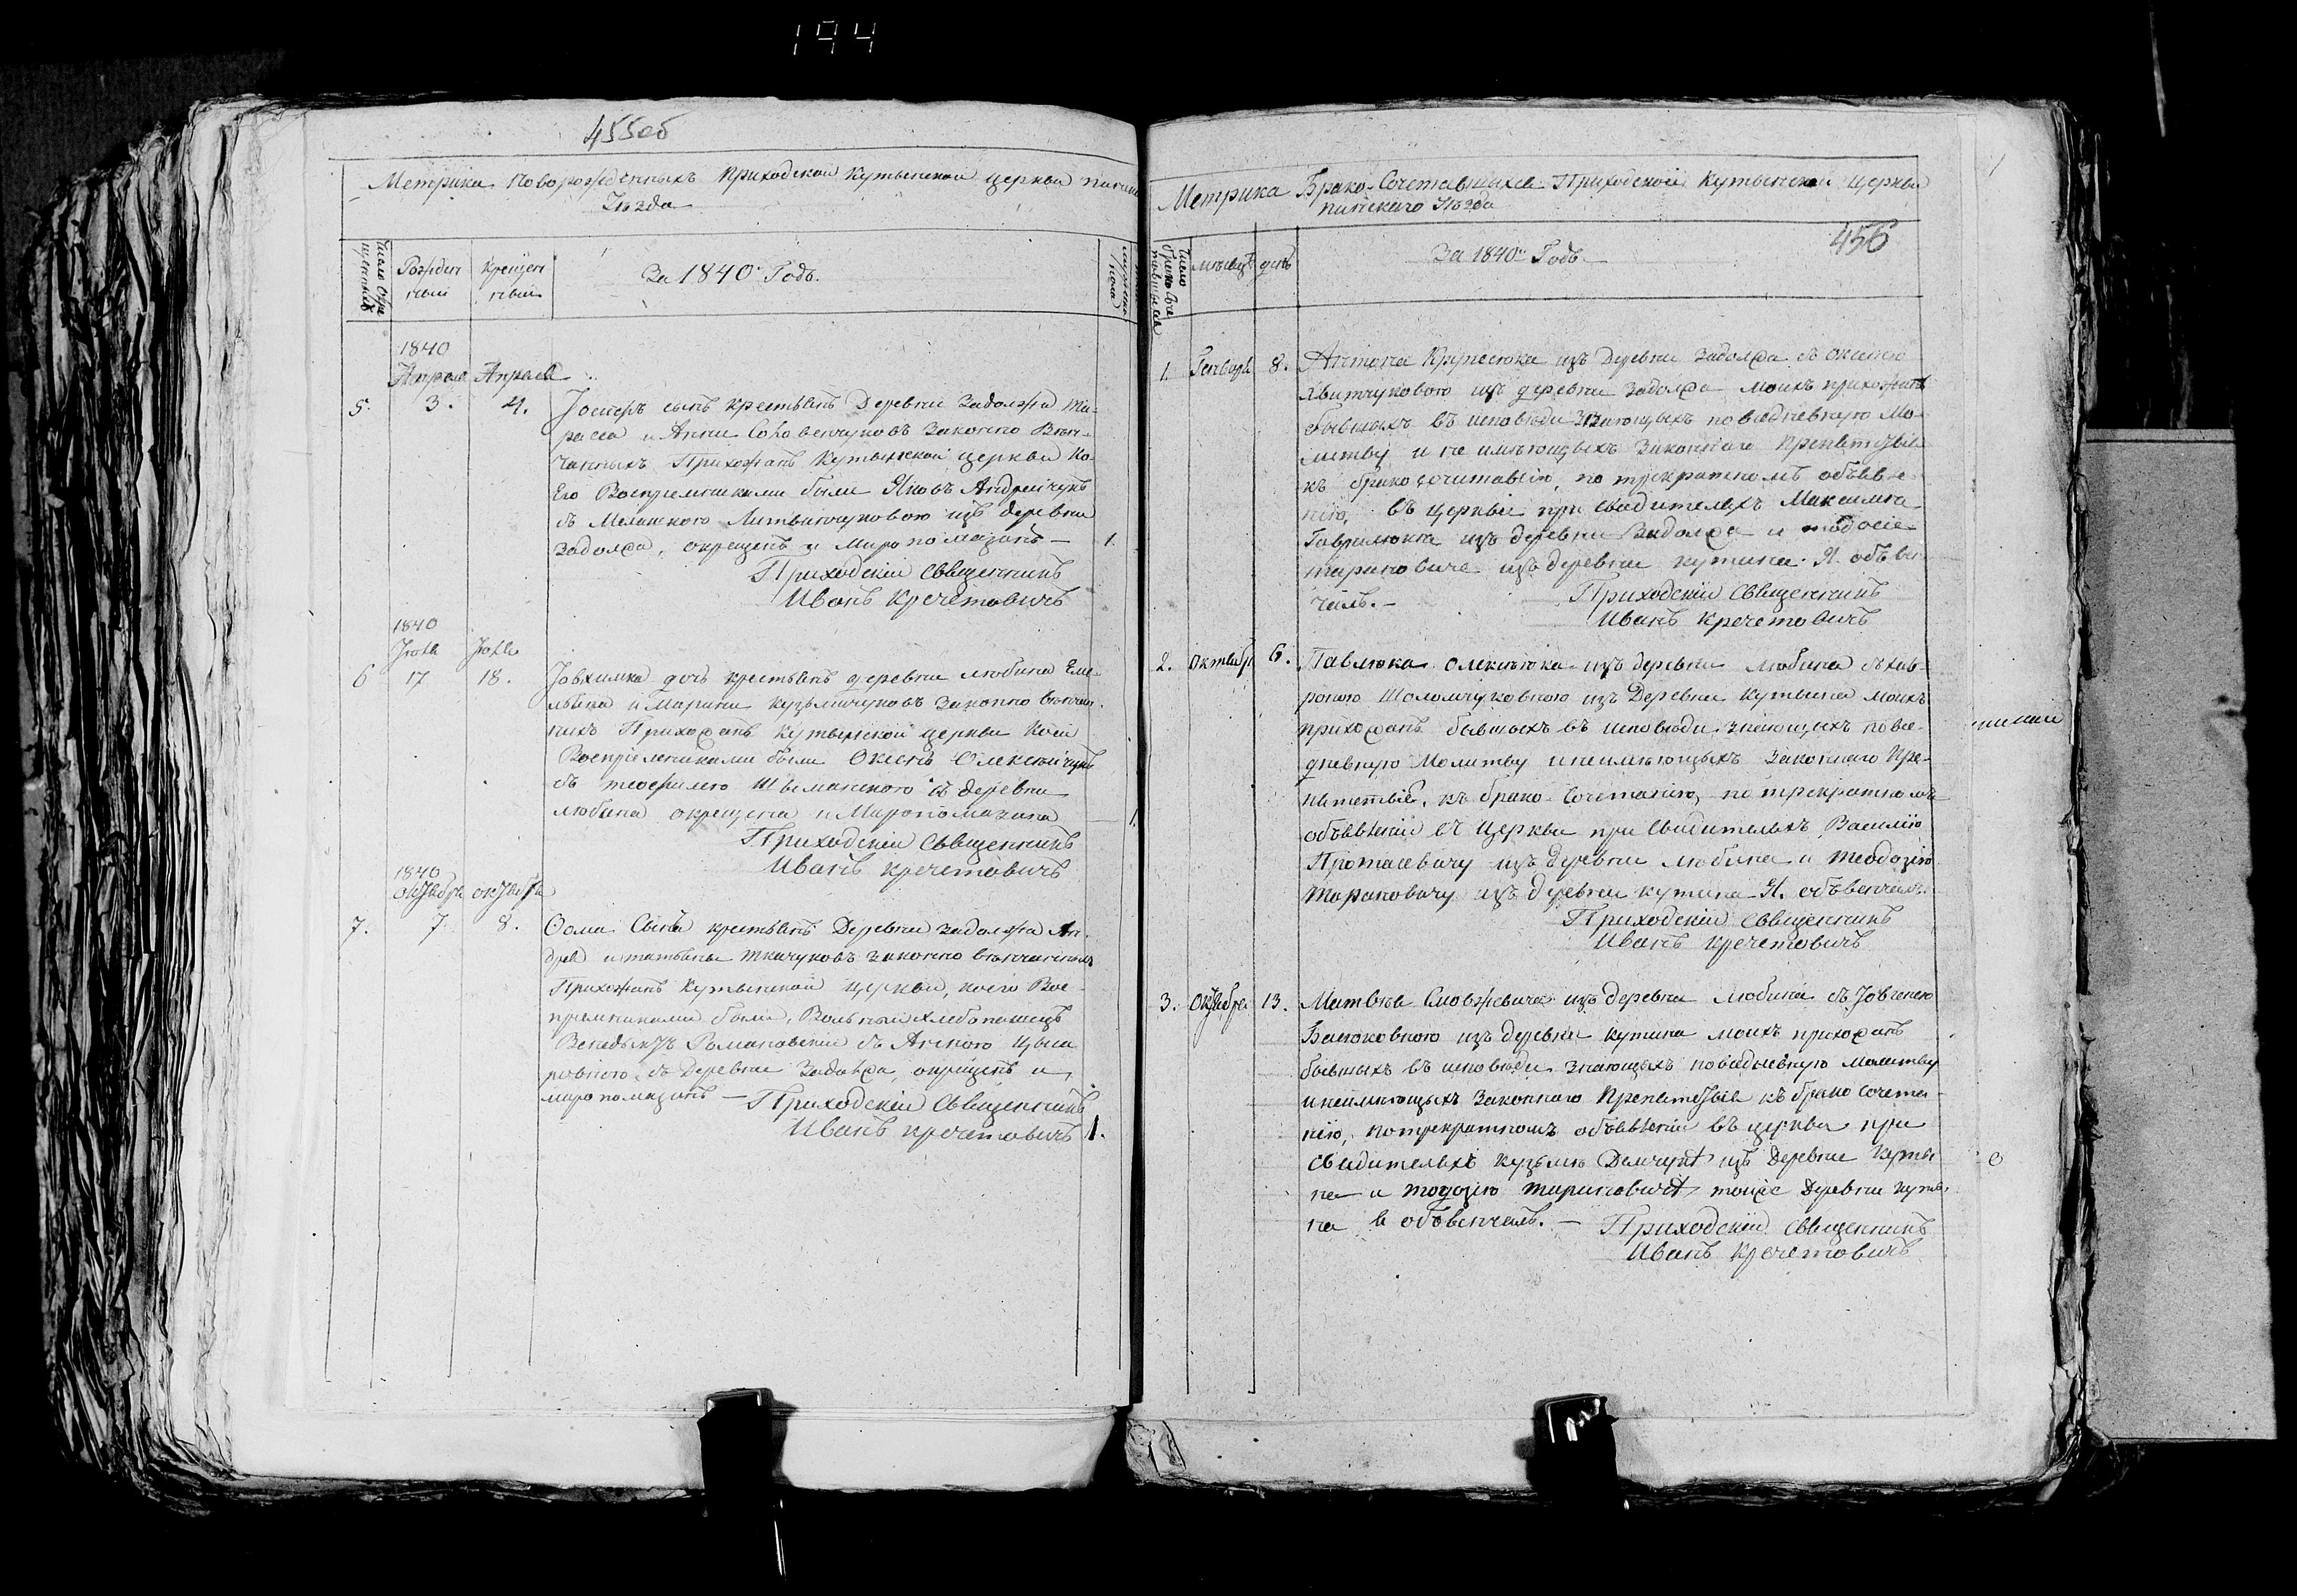 194
455об
Метрика Новорожденныхъ Приходской Кутынской церкви
Уѣзда
Рожден
ный
Крещен
ный
За 1840 Годъ.
1840
Апреля Апреля
5. 3. 4. Іосифъ сынъ крестьянъ Деревни Задолжа Та-
раса и Анны законно Вѣн-
чанныхъ Прихожанъ Кутынской церкви Ко-
Его Воспремниками были Яковъ Андрейчукъ
съ Меланкою Литвинчуковою изъ деревни
Задолжа, окрещенъ и Миропомазанъ — 1.
Приходскій Священникъ
Иванъ Кречетовичъ
1840
6 17 18. Іовхимка дочь крестьянъ деревни Любиня Еме-
льяна и Марины Кузьмичуковъ законно вѣнчан-
ныхъ Прихожанъ Кутынской церкви Коей
Воспріемниками были Олексѣйчукъ
съ теофилею съ деревни
любиня окрещена и Миропомазана — 1.
Приходскій Священникъ
Иванъ Кречетовичъ
1840
октября октября
7. 7 8. Фома Сынъ крестьянъ Деревни Задолжа Ан-
дрея и татьяны Ткачуковъ законно вѣнчанныхъ
Прихожанъ Кутынской церкви, коего Вос-
премниками были, Вольный хлебопашецъ
Венедыктъ Романовскій съ Анною
съ Деревни Задолжа, окрещенъ и
миропомазанъ — Приходскій Священникъ
Иванъ кречетовичъ 1.
Метрика Брако-Сочетавшихся Приходской Кутынской Церкви
пинскаго Уѣзда
456
Число
брако соче
тавшихся
мѣсяцъ день
За 1840 Годъ —
1. Генваря 8. Антона Крупсюка изъ Деревни Задолжа съ
Хвитчуковою изъ деревни Задолжа моихъ прихожанъ
бывшихъ въ исповѣди знающыхъ повседневную Мо-
литву и не имѣющыхъ Законнаго Препятствія
къ бракосочитанію, по трекратномъ объявле-
нію, въ церкви при свидителяхъ Максима
Гаврилюка изъ деревни Задолжа и тодосія
тариковича изъ деревни кутина. Я. объвѣн-
чалъ. — Приходскій Священникъ
Иванъ Кречетовичъ
2. октября 6. Павлюка олексѣюка изъ деревни любиня съ хав-
роною Шоломчуковною изъ Деревни Кутына моихъ
прихожанъ бывшыхъ въ исповѣди знающыхъ повсе-
дневную Молитву инеимѣющыхъ Законнаго Пре-
пятствія, къ брако-сочетанію, по трекратномъ
объявленіи въ Церкви при Свидителяхъ Василію
Протасевичу изъ деревни любиня и теодозію
Тариковичу изъ деревни кутина Я. объвенчалъ
Приходскій Священникъ
Иванъ кречетовичъ
3. Октября 13. Матвѣя Сковжевича изъ деревни любиня съ Іовгенею
изъ деревни кутина моихъ прихожанъ
бывшыхъ въ исповѣди знающыхъ повседневную молитву
инеимѣющыхъ Законнаго Препятствія къ брако сочета-
нію, потрекратномъ объявленіи въ церкви при
свидителяхъ кузьмѣ Демчука изъ Деревни Куты-
на и тодозію тариковича тойже Деревни куты-
на я объвенчалъ. — Приходскій Священникъ
Иванъ Кречетовичъ